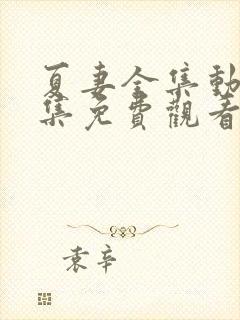 夏妻全集動
集免費觀看
袁辛